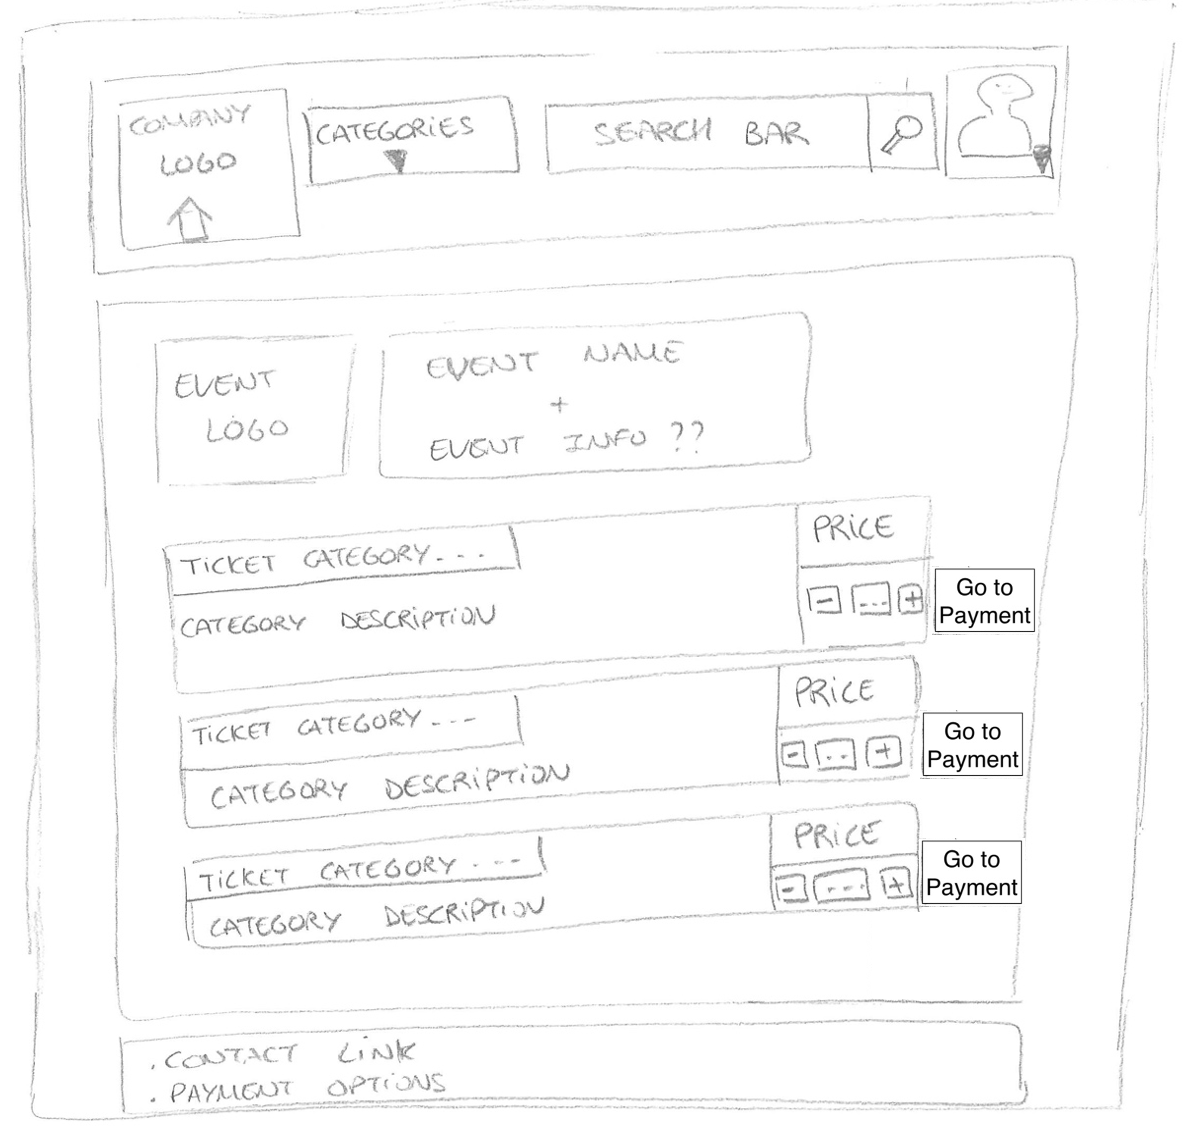 COMPANY
LOGO
CATEGORIES
SEARCH BAR
EVENT
LOGO
EVENT NAME
+
EVENT INFO ??
TICKET CATEGORY...
PRICE
CATEGORY DESCRIPTION
- ... +
Go to
Payment
TICKET CATEGORY...
PRICE
CATEGORY DESCRIPTION
- .. +
Go to
Payment
TICKET CATEGORY ...
PRICE
CATEGORY DESCRIPTION
- ... +
Go to
Payment
. CONTACT LINK
. PAYMENT OPTIONS